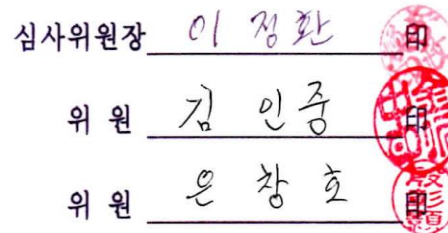 심사위원장 이정환 印
위 원 김인중 印
위 원 은창호 印